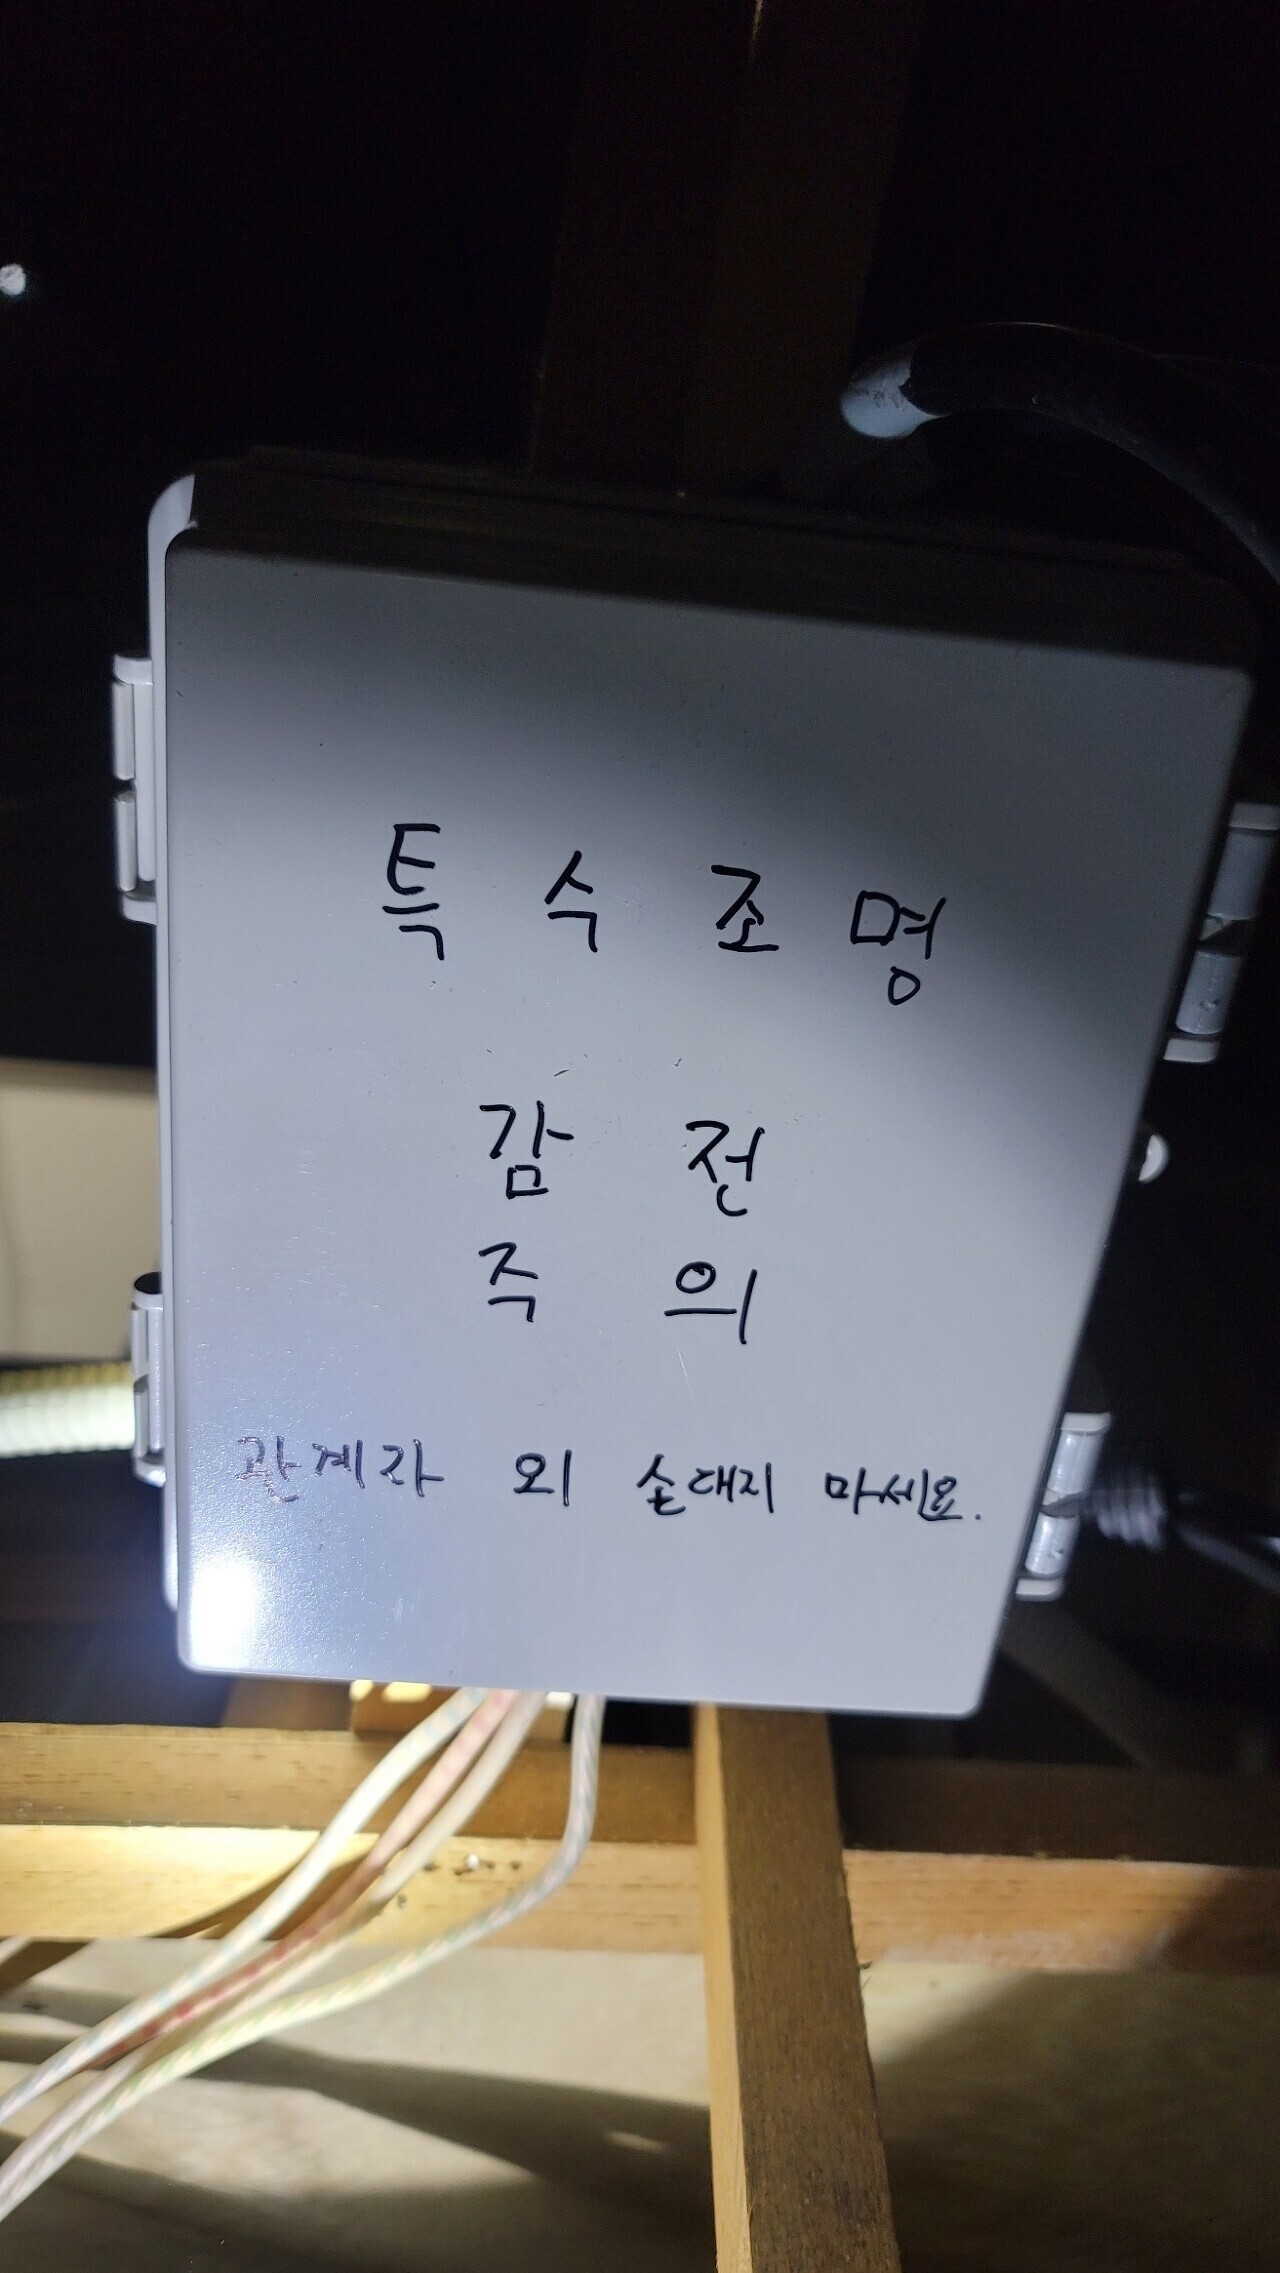 특수조명
감전
주의
관계자 외 손대지 마세요.